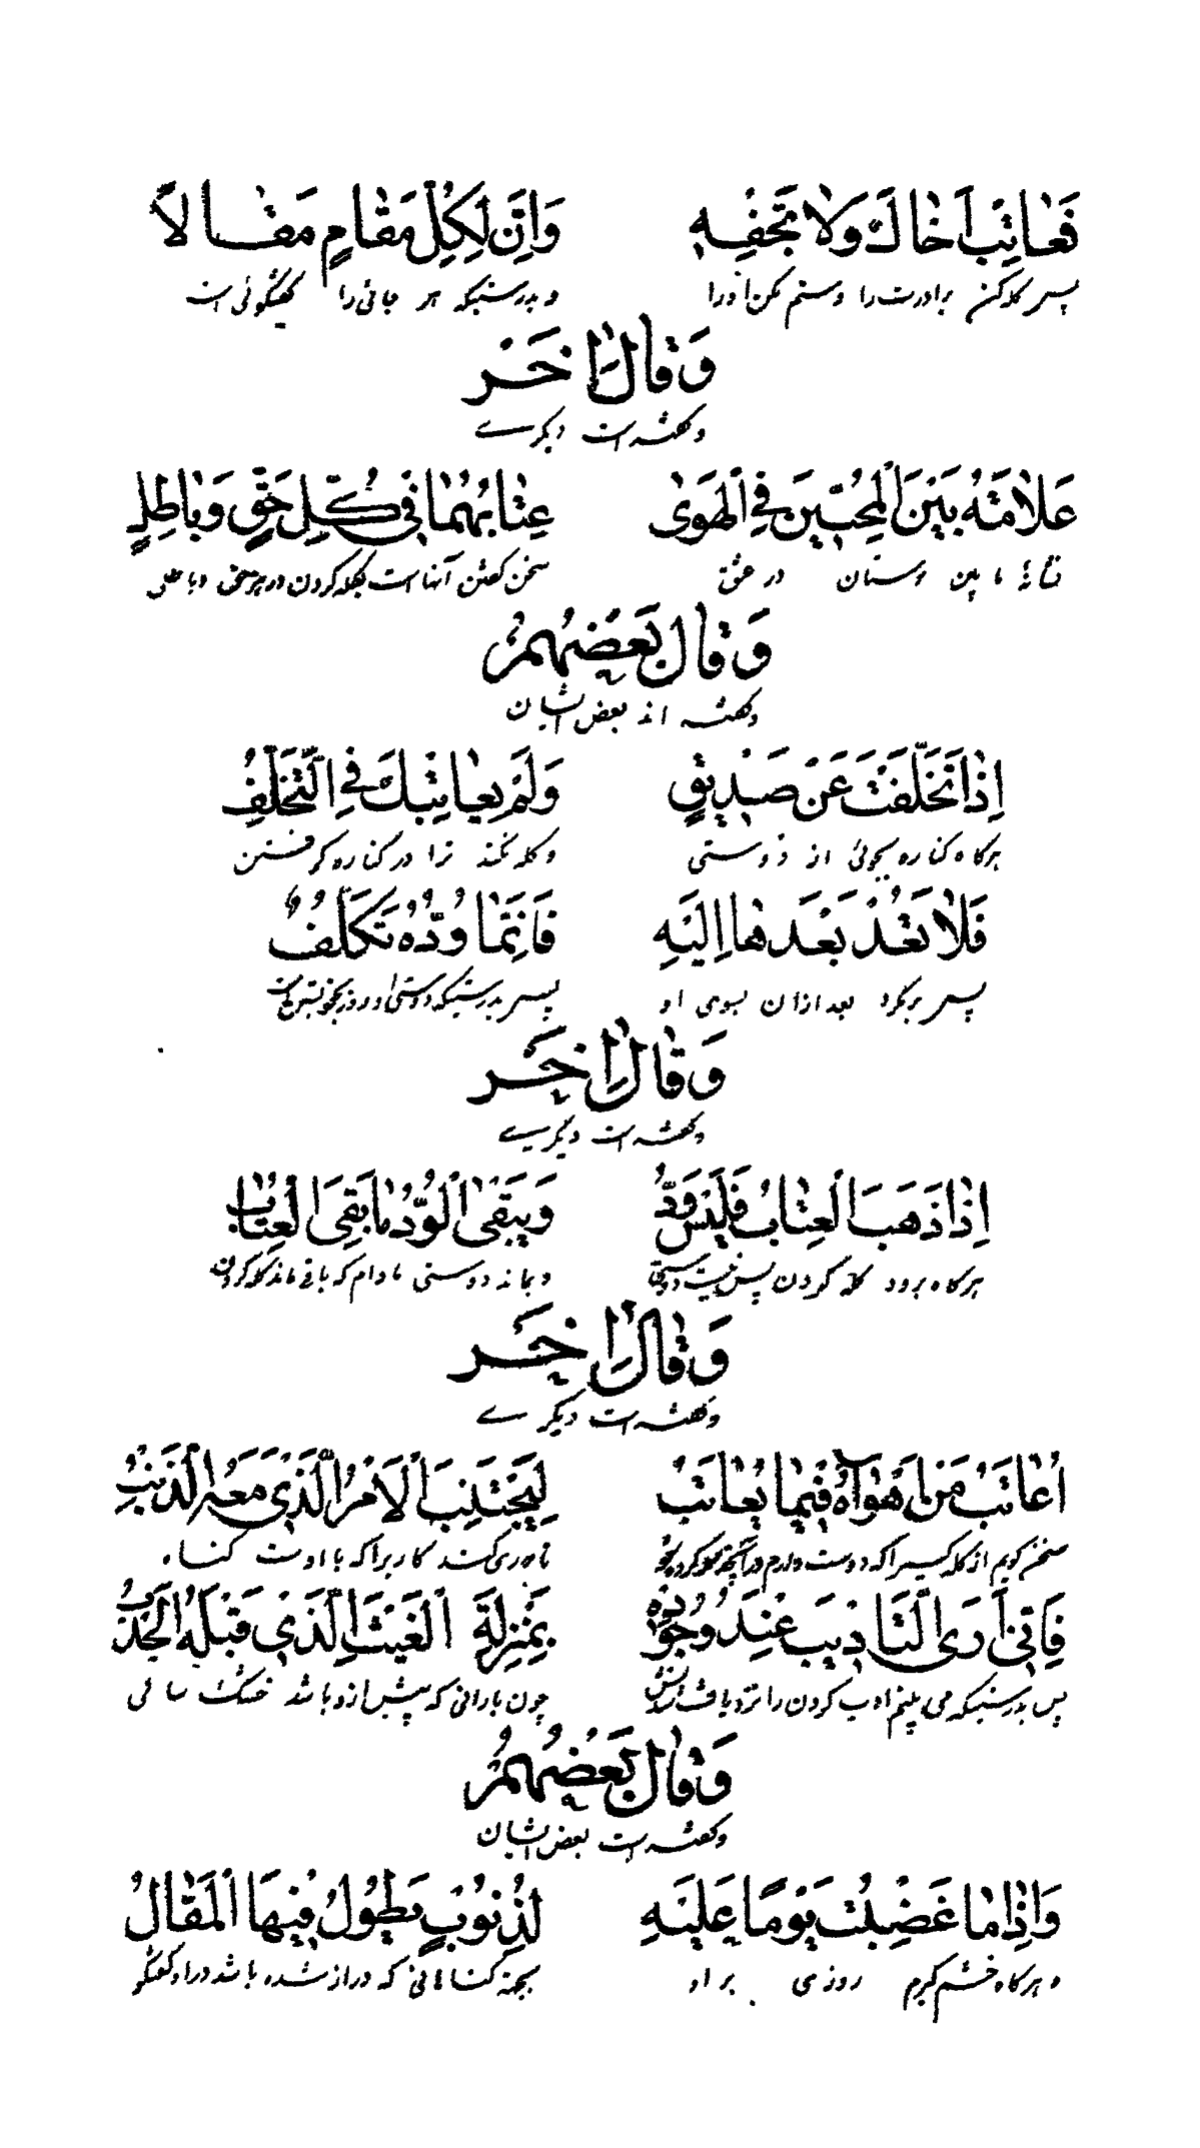 فَعاتِبْ اَخاكَ وَلا تَجْفِهِ وَاِنَّ لِكُلِّ مَقامٍ مَقالاً
پس كله كن برادرت را وستم مكن اورا و بدرستيكه هر جائى را گفتگوئى است
وَقالَ اخَر
وگفته است ديگرے
عَلامَتُهُ بَيْنَ الْمُحِبّينَ فِي الْهَوىٰ عِتابُهُما في كُلِّ حَقٍّ وَباطِلٍ
نشانهٔ ما بين دوستان در عشق سخن گفتن آنها است بگله كردن در هر حقى وباطلى
وَقالَ بَعْضُهُمْ
وگفته اند بعض ايشان
اِذا تَخَلَّفْتَ عَنْ صَديقٍ وَلَمْ يُعاتِبْكَ فِي التَّخَلُّفِ
هركاه كناره بجوئى از دوستى وكله نكند ترا در كناره گرفتن
فَلا تَعُدْ بَعْدَها اِلَيْهِ فَاِنَّما وُدُّهُ تَكَلُّفٌ
پس برنگرد بعد ازان بسوى او پس بدرستيكه دوستى او
وَقالَ اخَر
وگفته است ديگرے
اِذا ذَهَبَ الْعِتابُ فَلَيْسَ وُدٌّ وَيَبْقَى الْوُدُّ ما بَقِيَ الْعِتابُ
هركاه برود گله كردن پس نيست دوستى و بماند دوستى مادام كه باقى ماند گله كردن
وَقالَ اخَر
وگفته است ديگرے
اُعاتِبُ مَنْ اَهْواهُ فيما يُعاتَبُ لِيَجْتَنِبَ الْاَمْرَ الَّذي مَعَهُ الذَّنْبُ
سخن گويم از گله كسيرا كه دوست دارم در آنچه تا دورى كند كاريرا كه با اوست گناه
فَاِنّي اَرَى التَّاديبَ عِنْدَ وُجُوبِهِ بِمَنْزِلَةِ الْغَيْثِ الَّذي قَبْلَهُ الْجَدْبُ
پس بدرستيكه مى بينم ادب كردن را نزد چون بارانى كه پيش از او باشد خشك سالى
وَقالَ بَعْضُهُمْ
وگفته است بعض ايشان
وَاِذا ما غَضِبْتُ يَوْمًا عَلَيْهِ لِذُنُوبٍ يَطُولُ فيهَا الْمَقالُ
و هركاه خشم گيرم روزى بر او بجهة گناهانى كه دراز شده باشد در او گفتگو